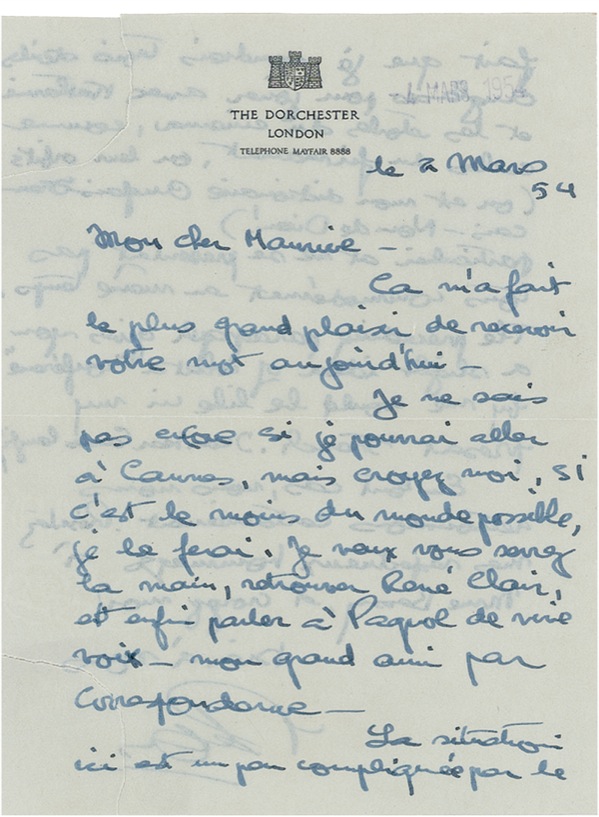 4 MARS 195
THE DORCHESTER
LONDON
TELEPHONE MAYFAIR 8888
le 2 Mars
54
Mon cher Maurice –
Ca m'a fait
le plus grand plaisir de recevoir
votre mot aujourd'hui –
Je ne sais
pas si je pourrai aller
à Cannes, mais croyez moi, si
c'est le moins du monde possible,
je le ferai. Je veux vous serrer
la main, retrouver René Clair,
et enfin parler à Pagnol de vive
voix – mon grand ami par
correspondance –
La situation
ici est un peu compliquée par le